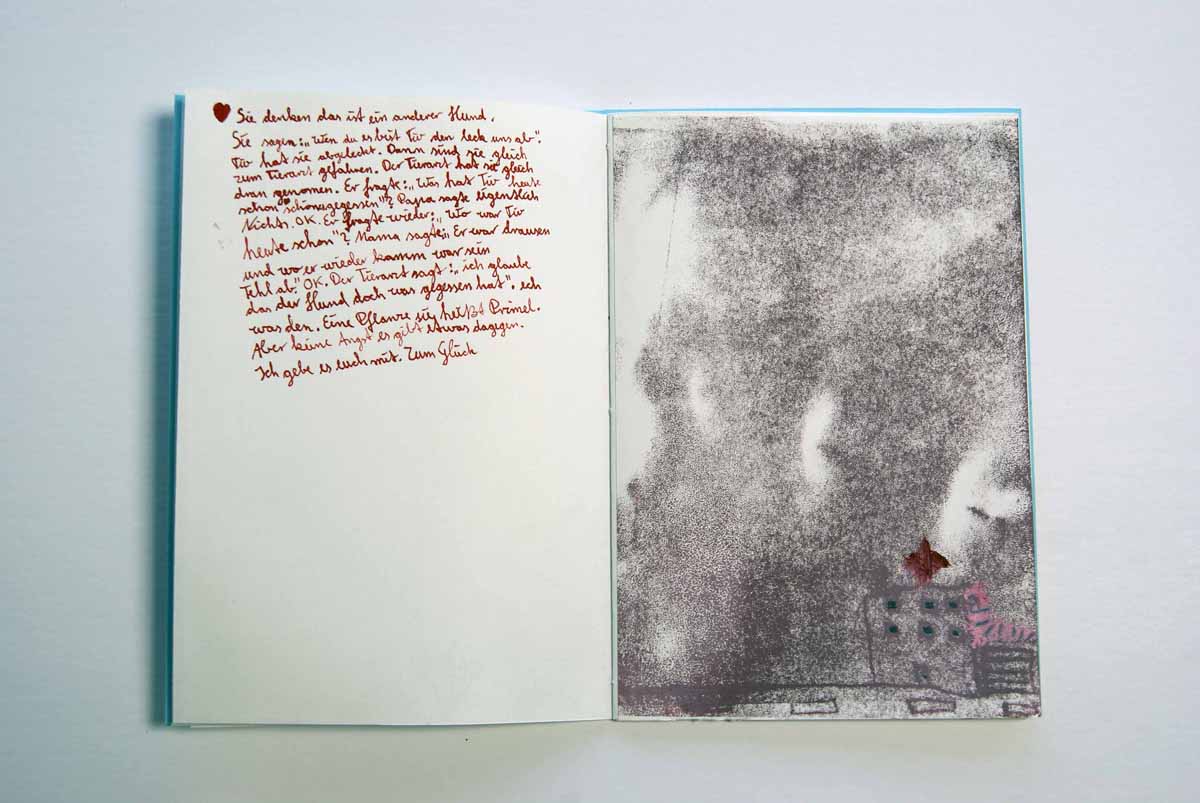 Sie denken das ist ein anderer Hund.
Sie sagen: „Wen du es bist Tiv den leck uns ab".
Tiv hat sie abgeleckt. Dann sind sie gleich
zum Tierarzt gefahren. Der Tierarzt hat sie gleich
dran genomen. Er fragte: „Was hat Tiv heute
schon gegessen"? Papa sagte eigentlich
Nichts. OK. Er fragte wieder: „Wo war Tiv
heute schon"? Mama sagte: „Er war drausen
und wo er wieder kamm war sein
Fehl ab." OK. Der Tierarzt sagt: „ich glaube
das der Hund doch was gegessen hat". ech
was den. Eine Pflanze sie heißt Primel.
Aber keine Angst es gibt etwas dagegen.
Ich gebe es euch mit. Zum Glück